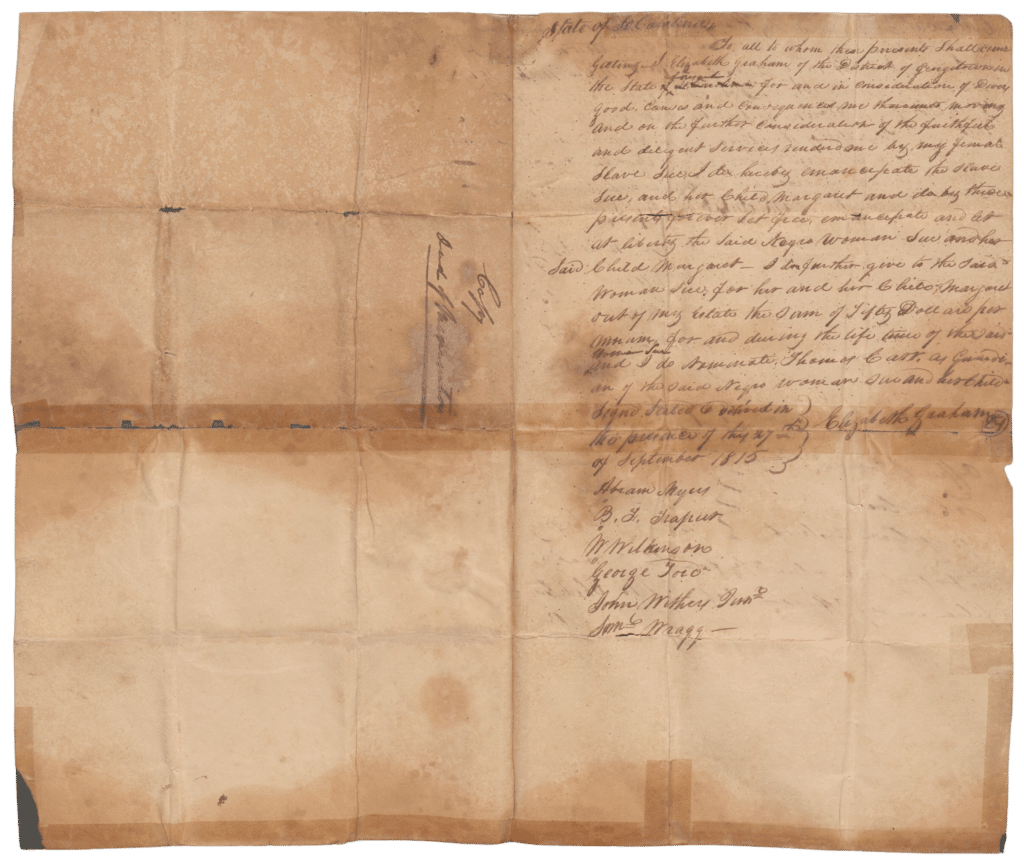 State of So. Carolina
To all to whom these presents Shall come
Greeting I Elizabeth Graham of the District of Georgetown in
the State aforesaid for and in consideration of Divers
good Causes and Consequences me thereunto moving
and on the further consideration of the faithful
and diligent Services rendered me by my female
Slave Sue, I do hereby emancipate the Slave
Sue, and her Child Margaret and do by these
presents forever Set free, emancipate and let
at liberty the Said Negro Woman Sue and her
Said Child Margaret – I do further give to the Said
Woman Sue, for her and her Child Margaret
out of my Estate the Sum of Fifty Dollars per
Annum, for and during the life time of the Said
Woman Sue
and I do Nominate Thomas as Guardi-
an of the Said Negro Woman Sue and her Child
Signd Sealed & in
the presence of this 27th
of September 1815
Elizabeth Graham
Abram Myers
B. F. Trapier
W Wilkinson
George Ford
John Withers Junr
Saml Wragg –
Copy
Deed of